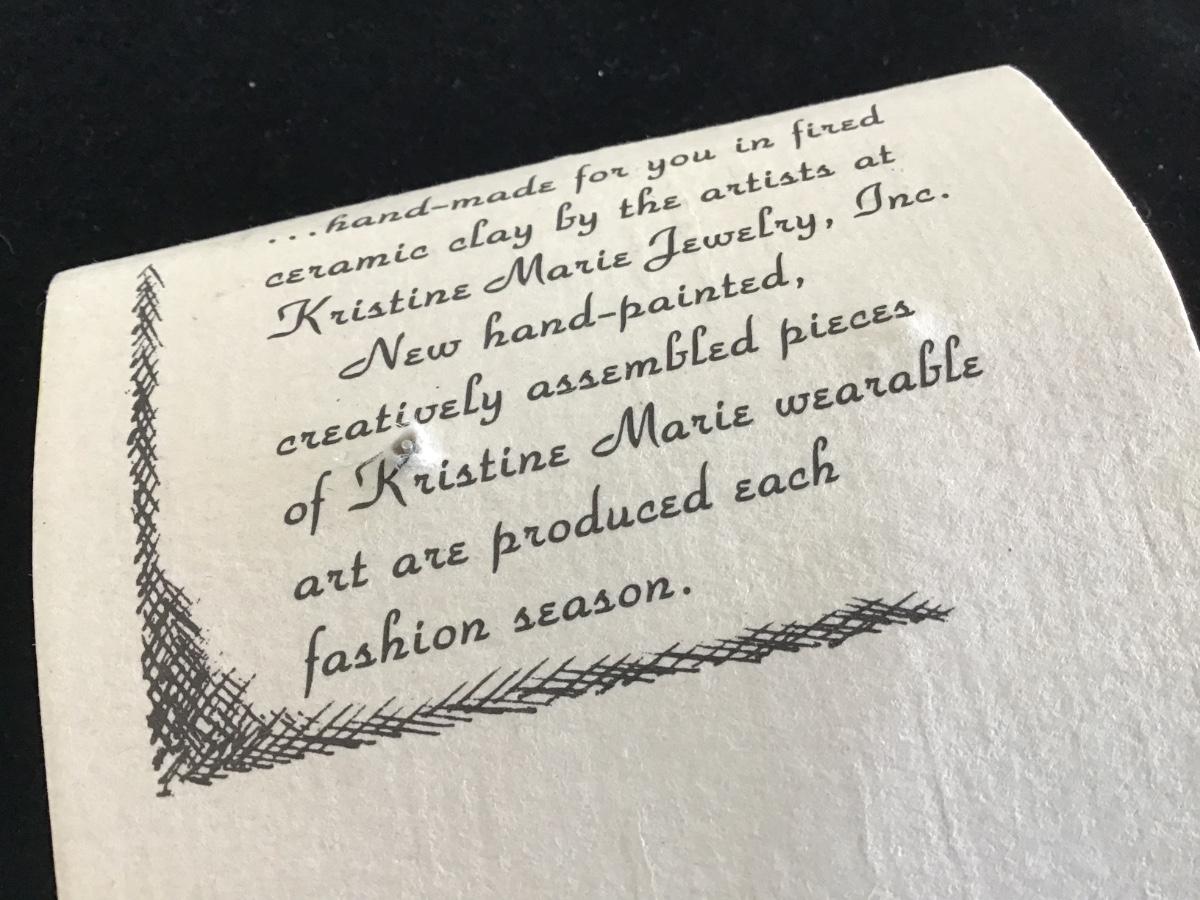 ...hand-made for you in fired
ceramic clay by the artists at
Kristine Marie Jewelry, Inc.
New hand-painted,
creatively assembled pieces
of Kristine Marie wearable
art are produced each
fashion season.